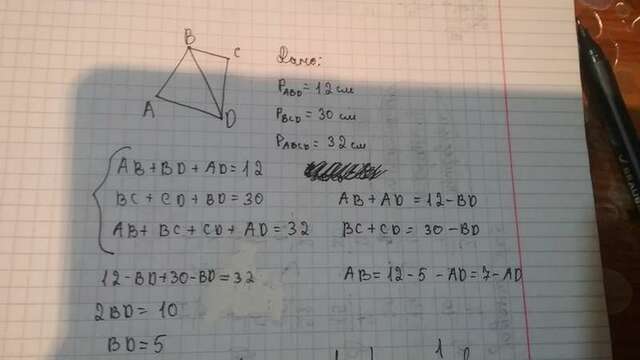 B
C
A
D
Дано:
P_ABD = 12 см
P_BCD = 30 см
P_ABCD = 32 см
AB + BD + AD = 12
BC + CD + BD = 30
AB + BC + CD + AD = 32
AB + AD = 12 - BD
BC + CD = 30 - BD
12 - BD + 30 - BD = 32
2BD = 10
BD = 5
AB = 12 - 5 - AD = 7 - AD